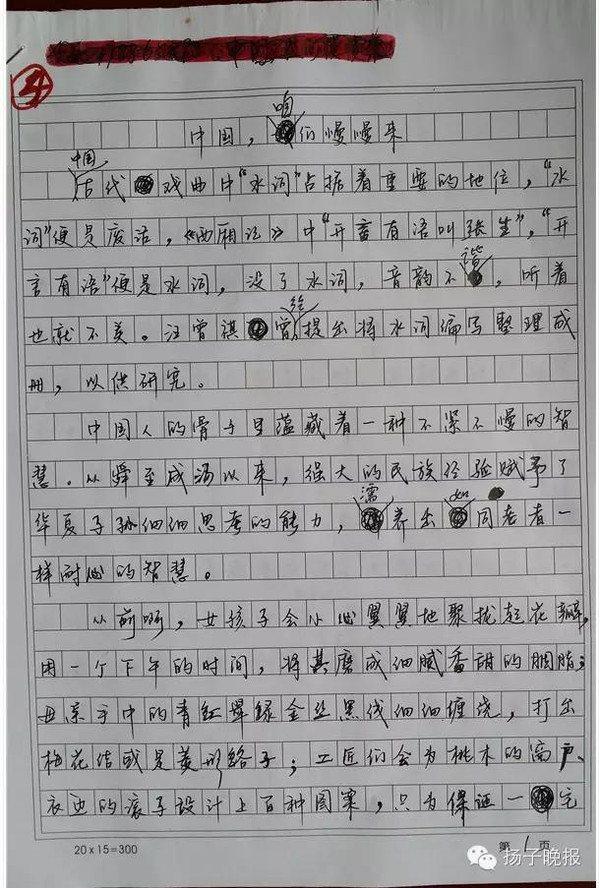 4
咱
中国，们慢慢来
中国
古代戏曲中“水词”占据着重要的地位，“水
词”便是废话，《西厢记》中“开言有语叫张生”，“开
谐
言有语”便是水词，没了水词，音韵不，听着
曾经
也就不美。汪曾祺提出将水词编写整理成
册，以供研究。
中国人的骨子里蕴藏着一种不紧不慢的智
慧。从舜至成汤以来，强大的民族经验赋予了
濡 如
华夏子孙细细思考的能力，养出同老者一
样耐心的智慧。
从前啊，女孩子会小心翼翼地聚拢起花瓣，
用一个下午的时间，将其磨成细腻香甜的胭脂；
母亲手中的青红翠绿金丝黑线细细缠绕，打出
梅花结或是菱形络子；工匠们会为桃木的窗户、
衣边的滚子设计上百种图案，只为保证一宅
20×15=300
第 1 页
扬子晚报